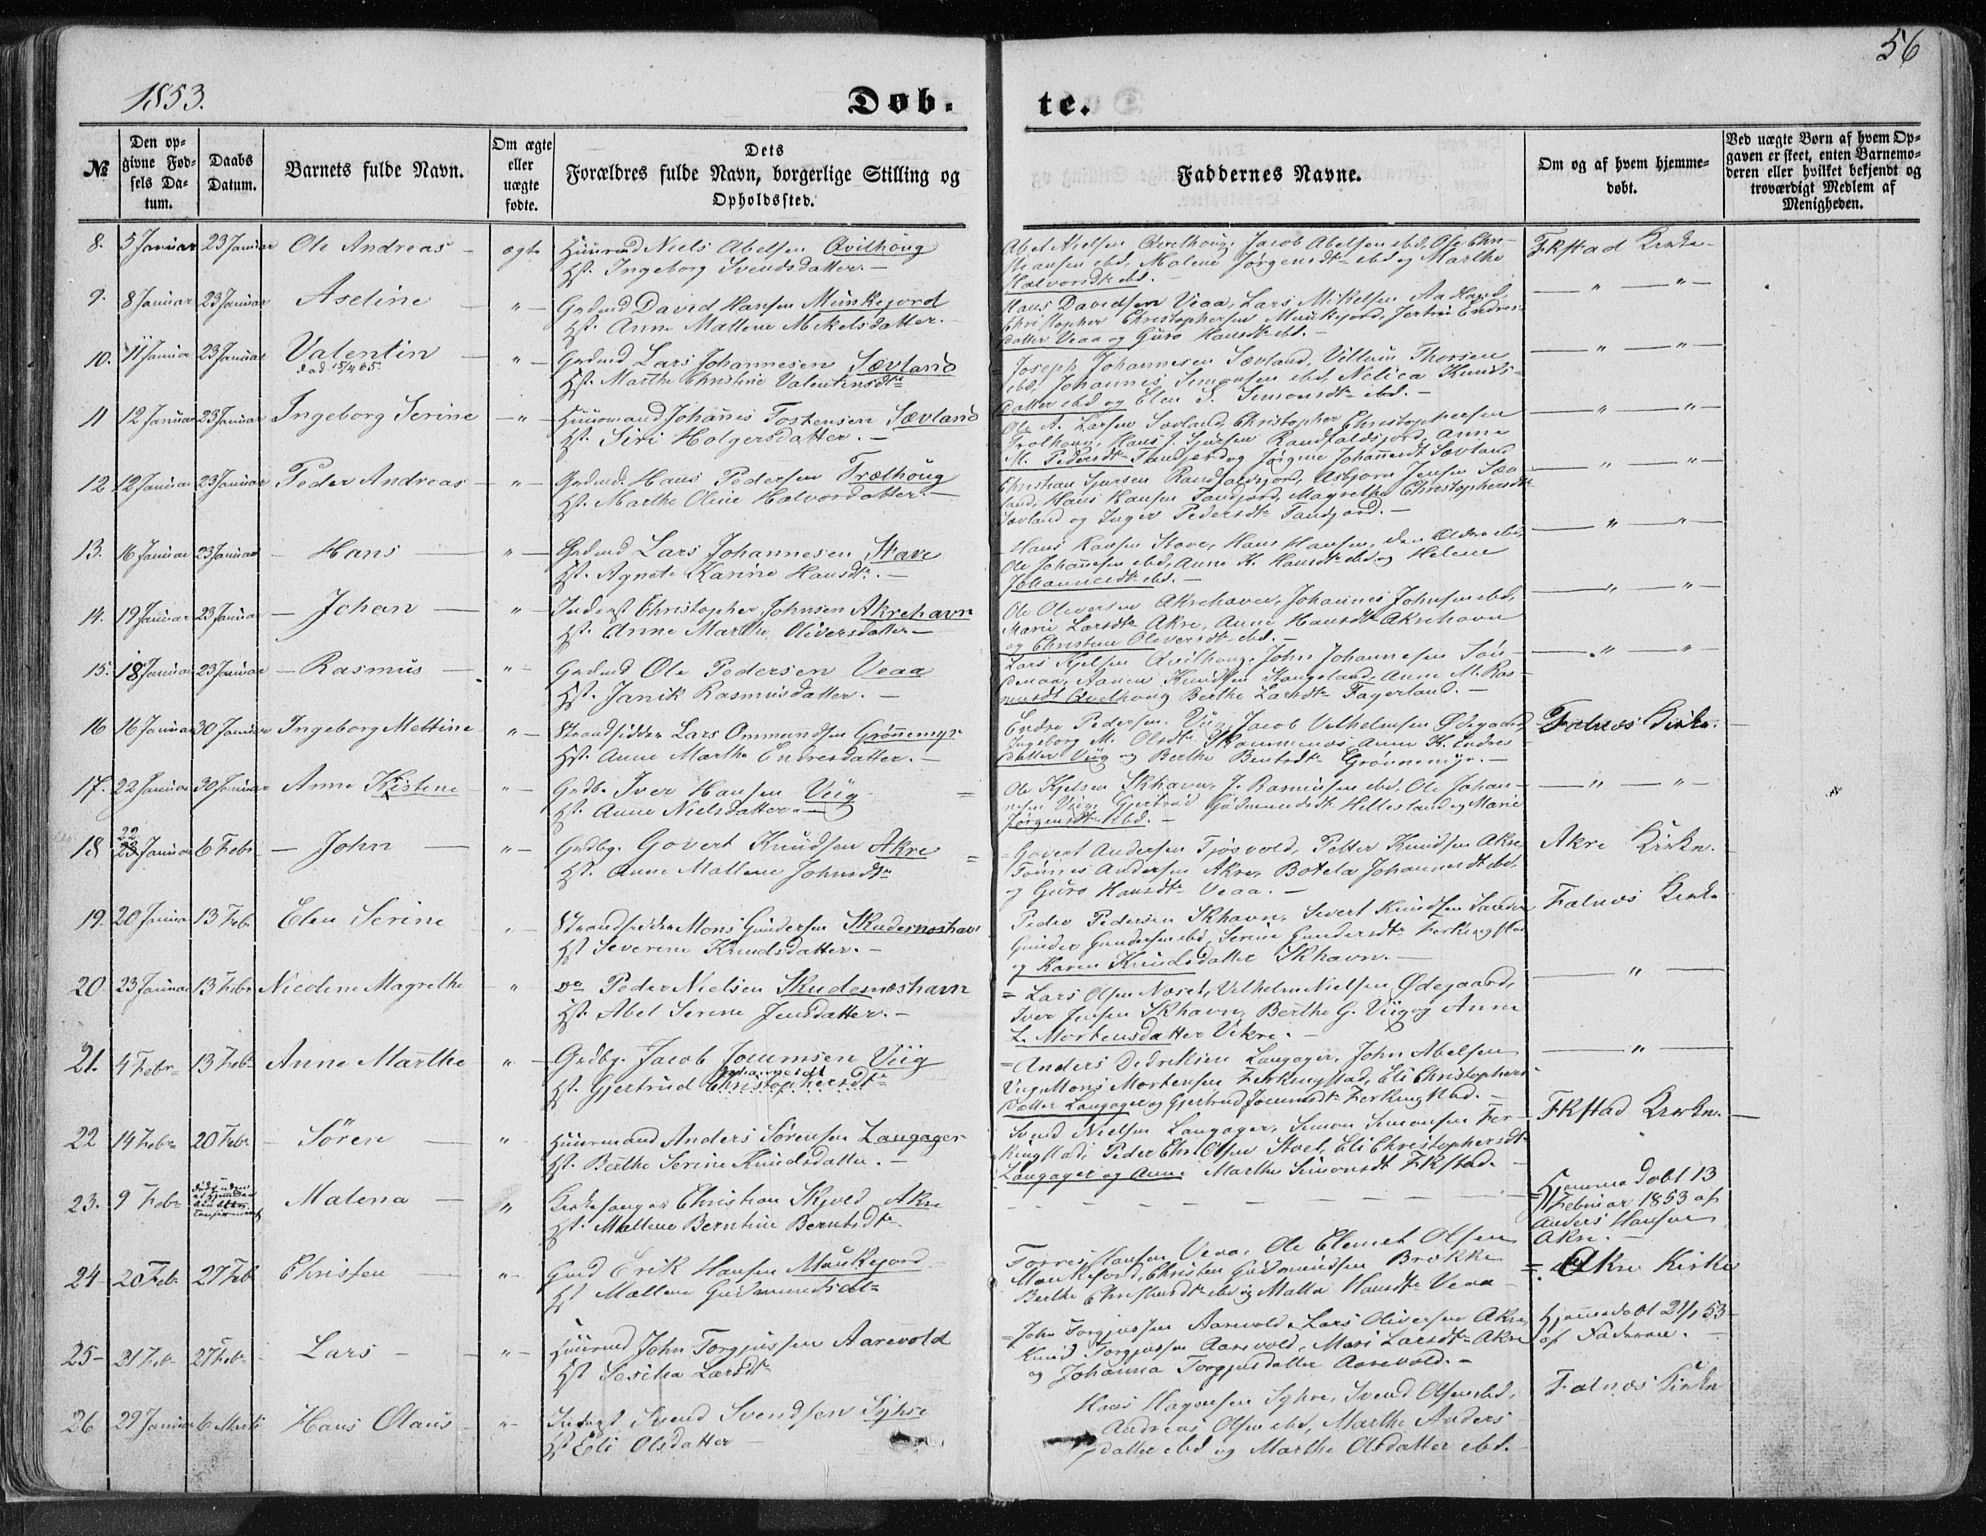 56
1853.
Døb-
te.
№
Den op-
givne Fød-
sels Da-
tum.
Daabs
Datum.
Barnets fulde Navn.
Om ægte
eller
uægte
fødte.
Dets
Forældres fulde Navn, borgerlige Stilling og
Opholdssted.
Faddernes Navne.
Om og af hvem hjemme-
døbt.
Ved uægte Børn af hvem Op-
gaven er skeet, enten Barnemo-
deren eller hvilket bekjendt og
troværdigt Medlem af
Menigheden.
8. 5 Januar 23 Januar Ole Andreas - ægte Huusmd Niels Abelsen Qvilhoug
Hst. Ingeborg Svendsdatter. -
Abel Nielsen Qvilhoug, Jacob Abelsen ibd, Ole Chri-
stiansen ibd, Malene Jørgensdtr ibd og Marthe
Halvorsdtr ibd.
Fkstad Kirke -
9. 8 Januar 23 Januar Aseline - " - Grdmd David Hansen Munkejord
Hst. Anne Mallene Mikelsdatter. -
Hans Davidsen Veaa, Lars Mikelsen Aadland,
Christopher Christophersen Munkejord, Jertrü Endres-
datter Veaa og Guro Hansdtr ibd. -
— " — " —
10. 11 Januar 23 Januar Valentin - " - Grdmd Lars Johannesen Sævland
død 15/4 65.
Hst. Marthe Christine Valentinsdtr
Joseph Johannesen Sævland, Villum Thorsen
ibd, Johannes Simonsen ibd, Nelica Knuds-
datter ibd og Elen S. Simonsdtr ibd. -
— " — " —
11 12 Januar 23 Januar Ingeborg Serine - " - Huusmand Johannes Tostensen Sævland
Hst. Siri Holgersdatter. -
Ole A. Larsen Sævland, Christopher Christophersen
Trælhoug, Hans J. Sjursen Randfaldsjord, Anne
M. Pedersdtr Tandjord og Jørgine Johannesdtr Sævland
— " — " —
12 12 Januar 23 Januar Peder Andreas - " - Grdmd. Hans Pedersen Trælhoug
Hst. Marthe Oline Halvordatter. -
Christian Sjursen Randfaldsjord, Asbjørn Jensen Sæv-
land, Hans Hansen Tandjord, Magrethe Christophersdtr
Sævland og Inger Pedersdtr Tandjord. -
— " — " —
13. 16 Januar 23 Januar - Hans - " - Grdmd Lars Johannesen Stave
Hst. Agnete Karine Hansdtr. -
Hans Hansen Stave, Hans Hansen, den Ældre ibd,
Ole Johannesen ibd, Anne K. Hansdtr ibd og Helene
Johannesdtr ibd. -
— " — " —
14. 19 Januar 23 Januar - Johan - " - Inderst Christopher Johnsen Akrehavn
Hst. Anne Marthe Oliversdatter -
Ole Oliversen Akrehavn, Johannes Johnsen ibd,
Marie Larsdtr Akre, Anne Hansdtr Akrehavn
og Christine Oliversdtr ibd. -
— " — " —
15. 18 Januar 23 Januar - Rasmus - " - Grdmd Ole Pedersen Veaa
Hst. Janik Rasmusdatter. -
Lars Kjelsen Qvilhoug, John Johannesen Søn-
denaa, Aanen Knudsen Haugeland, Anne M. Ras-
musdtr Qvilhoug Berthe Larsdtr Fagerland. -
— " — " —
16 16 Januar 30 Januar Ingeborg Mettine " - Strandsidder Lars Ommundsen Grønnemyr
Hst. Anne Marthe Endresdatter. -
Endre Pedersen Viig, Jacob Vilhelmsen Ødegaard,
Ingeborg M. Olsdtr Skaumenos, Anne K. Endres-
datter Viig og Berthe Bentsdtr Grønnemyr. -
Falnæs Kirke. -
17. 22 Januar 30 Januar Anne Kristine " - Grdbr. Iver Hansen Viig
Hst. Anne Nielsdatter. -
Ole Kjelsen Skhavn, J. Rasmusen ibd, Ole Johan-
nesen Viig, Gjertrud Gudmundsdtr Hillestand og Marie
Jørgensdtr ibd. -
— " — " —
22
18 23 Januar 6 Febr - John - " - Grdbr. Govert Knudsen Akre
Hst. Anne Mallene Johnsdtr
Govert Andersen Tjøsvold, Petter Knudsen Akre
Tønnes Andersen Akre, Botela Johannesdtr ibd.
og Guro Hansdtr Veaa. -
Akre Kirke.
19. 20 Januar 13 Feb Elen Serine Strandsidder Mons Gundersen Skudenæshavn
Hst Severine Knudsdatter. -
Peder Pedersen Skhavn, Sivert Knudsen Sanden
Gunder Gundersen ibd, Serine Gundersdtr Ferkingstad
og Karen Knudsdatter Skhavn. -
Falnæs Kirke
20. 23 Januar 13 Febr Nicoline Magrethe " do Peder Nielsen Skudenæshavn
Hst. Abel Serine Jensdatter. -
Lars Olsen Næset, Vilhelm Nielsen Ødegaard,
Iver Jensen Skhavn, Berthe G. Viig og Anne
L. Mortensdatter Vikre. -
— " —
21. 4 Febr 13 Feb Anne Marthe " - Grdbr. Jacob Joumsen Viig
Johannesdt
Hst. Gjertrud Christophersdtr
Anders Didriksen Langager, John Abelsen
Viig, Mons Mortensen Ferkingstad, Eli Christophers-
datter Langager og Gjertrud Joumsdtr Ferkingstad. -
— " —
22 14 Feb 20 Feb - Søren - " Huusmand Anders Sørensen Langager
Hst. Berthe Serine Knudsdatter. -
Svend Nielsen Langager, Simon Simonsen Fer-
kingstad, Peder Chr. Olsen Stoel, Eli Christophersdtr
Langager og Anne Marthe Simonsdt Fkstad.
Fkstad Kirke. -
23. 9 Feb Malena - " Kirkesanger Christian Skjold Akre
Hst. Mallene Berntine Berntsdtr
Hjemmedøbt 13
Februar 1853 af
Anders Hansen
Akre. -
24- 20 Feb 27 Feb Christen - " - Grmd Erik Hansen Munkejord
Hst Mallene Gudmundsdtr
Torres Hansen Veaa, Ole Clemet Olsen
Munkejord, Christen Gudmundsen Brekke
Berthe Christensdtr ibd og Malla Hansdtr Veaa -
Akre Kirke
25- 21 Feb 27 Feb - Lars - " - Huusmd John Torgjussen Aarevold
Hst Sesilia Larsdtr
John Torgjussen Aarevold, Lars Oliversen Akre,
Knud Torgjussen Aarevold, Mari Larsdtr Akre
og Johanna Torgjusdatter Aarevold. -
Hjemmedøbt 21/2 53
af Faderen. -
26 29 Januar 6 Marts Hans Olaus " Inderst Svend Svendsen Syhre
Hst Eli Olsdatter -
Hans Hagensen Syhre, Svend Olsen ibd,
Andreas Olsen ibd, Marthe Anders-
datter ibd og Marthe Olsdatter ibd. -
Falnæs Kirke